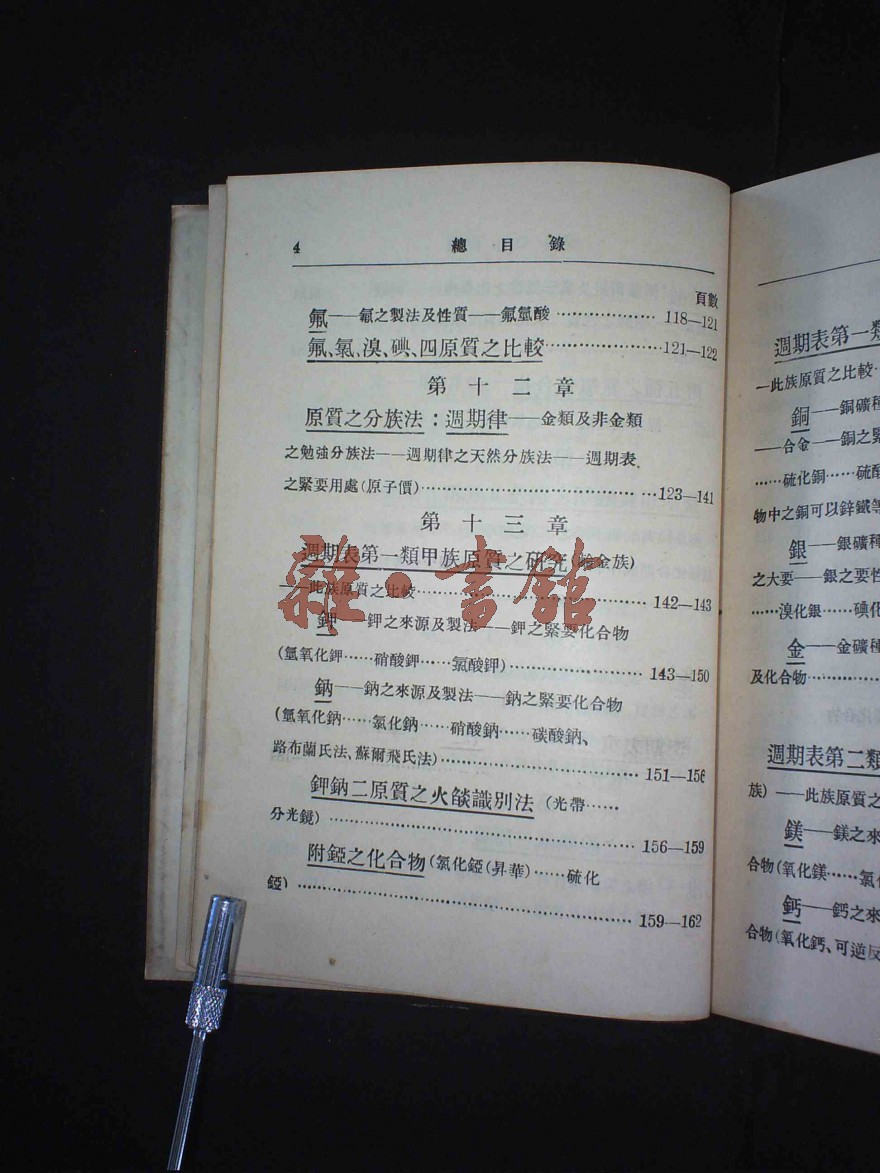 4 總目錄
頁數
氟——氟之製法及性質——氟氫酸 ……………… 118—121
氟、氯、溴、碘、四原質之比較 ……………… 121—122
第十二章
原質之分族法：週期律——金類及非金類
之勉強分族法——週期律之天然分族法——週期表
之緊要用處（原子價）……………… 123—141
第十三章
週期表第一類甲族原質之研究（鹼金族）
——此族原質之比較 ……………… 142—143
鉀——鉀之來源及製法——鉀之緊要化合物
（氫氧化鉀……硝酸鉀……氯酸鉀）……………… 143—150
鈉——鈉之來源及製法——鈉之緊要化合物
（氫氧化鈉……氯化鈉……硝酸鈉……碳酸鈉、
路布蘭氏法、蘇爾飛氏法）……………… 151—156
鉀鈉二原質之火燄識別法（光帶……
分光鏡）……………… 156—159
附錏之化合物（氯化錏（昇華）……硫化
錏）……………… 159—162
雜·書館
週期表第一類
—此族原質之比較
銅——銅礦種
——合金——銅之緊
……硫化銅……硫酸
物中之銅可以鋅鐵等
銀——銀礦種
之大要——銀之要性
……溴化銀……碘化
金——金礦種
及化合物………………
週期表第二類
族）——此族原質之
鎂——鎂之來
合物（氧化鎂……氯化
鈣——鈣之來
合物（氧化鈣、可逆反